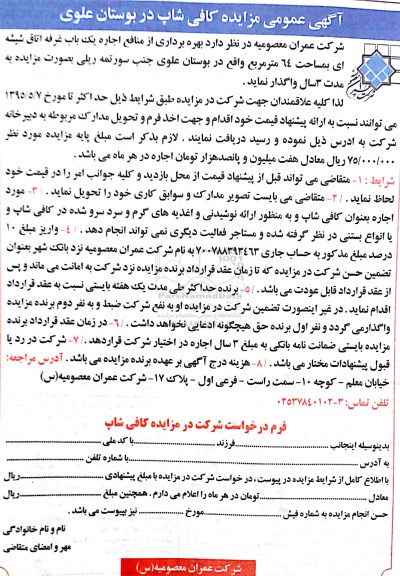 آگهی عمومی مزایده کافی شاپ در بوستان علوی
شرکت عمران معصومیه در نظر دارد بهره برداری از منافع اجاره یک باب غرفه اتاق شیشه
ای بمساحت ٦٤ مترمربع واقع در بوستان علوی جنب سورتمه ریلی بصورت مزایده به
مدت ۳سال واگذار نماید .
لذا کلیه علاقمندان جهت شرکت در مزایده طبق شرایط ذیل حداکثر تا مورخ ۱۳۹۵/۵/۷
می توانند نسبت به ارائه پیشنهاد قیمت خود اقدام و جهت اخذ فرم و تحویل مدارک مربوطه به دبیرخانه
شرکت به ادرس ذیل نموده و رسید دریافت نمایند . لازم بذکر است مبلغ پایه مزایده مورد نظر
۷۵/۰۰۰/۰۰۰ ریال معادل هفت میلیون و پانصدهزار تومان اجاره در هر ماه می باشد .
شرایط : ۱- متقاضی می تواند قبل از پیشنهاد قیمت از محل بازدید و کلیه جوانب امر را در قیمت خود
لحاظ نماید . /۲- متقاضی می بایست تصویر مدارک و سوابق کاری خود را تحویل نماید . /۳- مورد
اجاره بعنوان کافی شاپ و به منظور ارائه نوشیدنی و اغذیه های گرم و سرد سرو شده در کافی شاپ و
یا انواع بستنی در نظر گرفته شده و مستاجر فعالیت دیگری نمی تواند انجام دهد . /٤- واریز مبلغ ۱۰
درصد مبلغ مذکور به حساب جاری ۷۰۰۷۸۸۳۹۳٤٦۳ به نام شرکت عمران معصومیه نزد بانک شهر بعنوان
تضمین حسن شرکت در مزایده که تا زمان عقد قرارداد برنده مزایده نزد شرکت به امانت می ماند و پس
از عقد قرارداد قابل عودت می باشد . /۵- برنده حداکثر طی مدت یک هفته بایستی نسبت به عقد قرارداد
اقدام نماید . در غیر اینصورت تضمین شرکت در مزایده او به نفع شرکت ضبط و به نفر دوم برنده مزایده
واگذارمی گردد و نفر اول برنده حق هیچگونه ادعایی نخواهد داشت . /٦- در زمان عقد قرارداد برنده
مزایده بایستی ضمانت نامه بانکی به مبلغ ۳ سال اجاره در اختیار شرکت قراردهد . /۷- شرکت در رد یا
قبول پیشنهادات مختار می باشد . /۸- هزینه درج آگهی بر عهده برنده مزایده می باشد . آدرس مراجعه:
خیابان معلم - کوچه ۱۰- سمت راست - فرعی اول - پلاک ۱۷- شرکت عمران معصومیه(س)
تلفن تماس: ۳-۰۲۵۳۷۸٤۰۱۰۲
فرم درخواست شرکت در مزایده کافی شاپ
بدینوسیله اینجانب ........ فرزند ........ با کد ملی ........
به آدرس ........ با شماره تلفن ........
با اطلاع کامل از شرایط مزایده در پیوست ، در خواست شرکت در مزایده با مبلغ پیشنهادی ........ ریال
معادل ........ تومان در هر ماه را اعلام می دارم . همچنین مبلغ ........ ریال
حسن انجام مزایده به شماره فیش ........ مورخ ........ نیز بپیوست می باشد .
نام و نام خانوادگی
مهر و امضای متقاضی
شرکت عمران معصومیه(س)